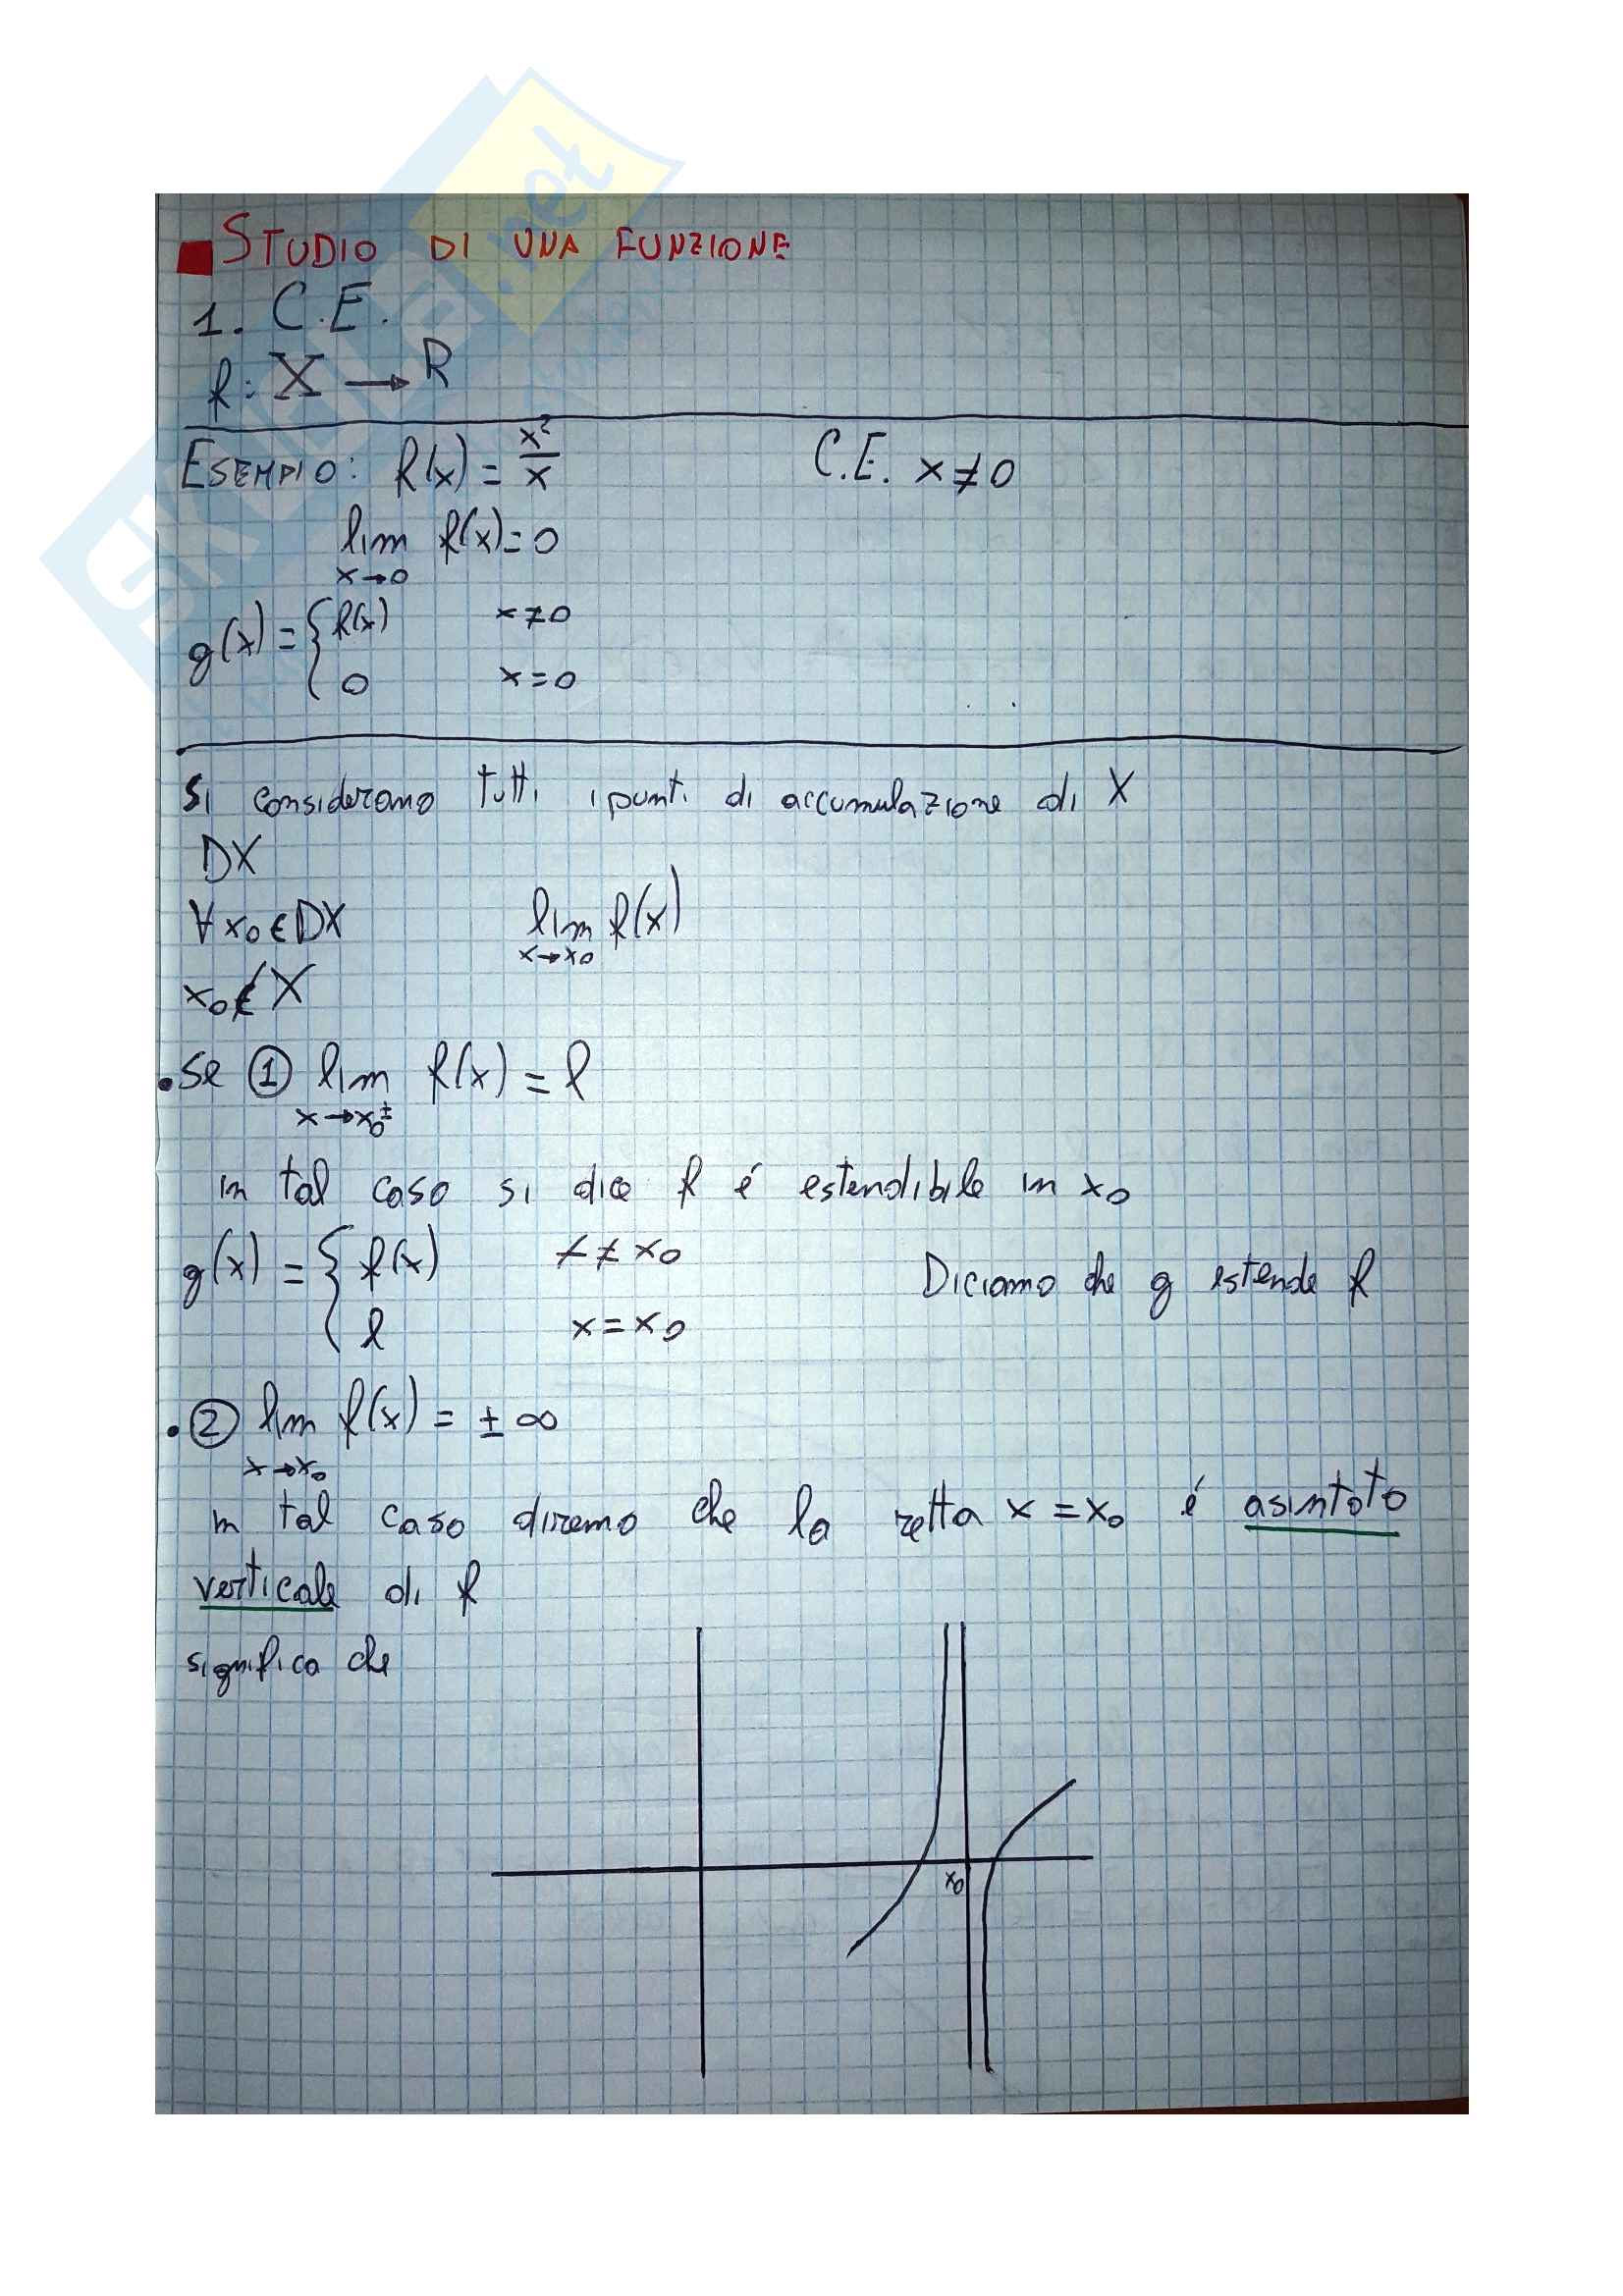 STUDIO DI UNA FUNZIONE
1. C.E.
f: X → R
ESEMPIO: f(x) = x²/x C.E. x ≠ 0
lim f(x) = 0
x→0
g(x) = { f(x) x ≠ 0
0 x = 0
Si considerano tutti i punti di accumulazione di X
DX
∀ x₀ ∈ DX lim f(x)
x→x₀
x₀ ∉ X
• Se ① lim f(x) = l
x→x₀±
in tal caso si dice f é estendibile in x₀
g(x) = { f(x) x ≠ x₀
l x = x₀
Diciamo che g estende f
• ② lim f(x) = ± ∞
x→x₀
in tal caso diremo che la retta x = x₀ é asintoto
verticale di f
significa che
x₀
SKUOLA.net